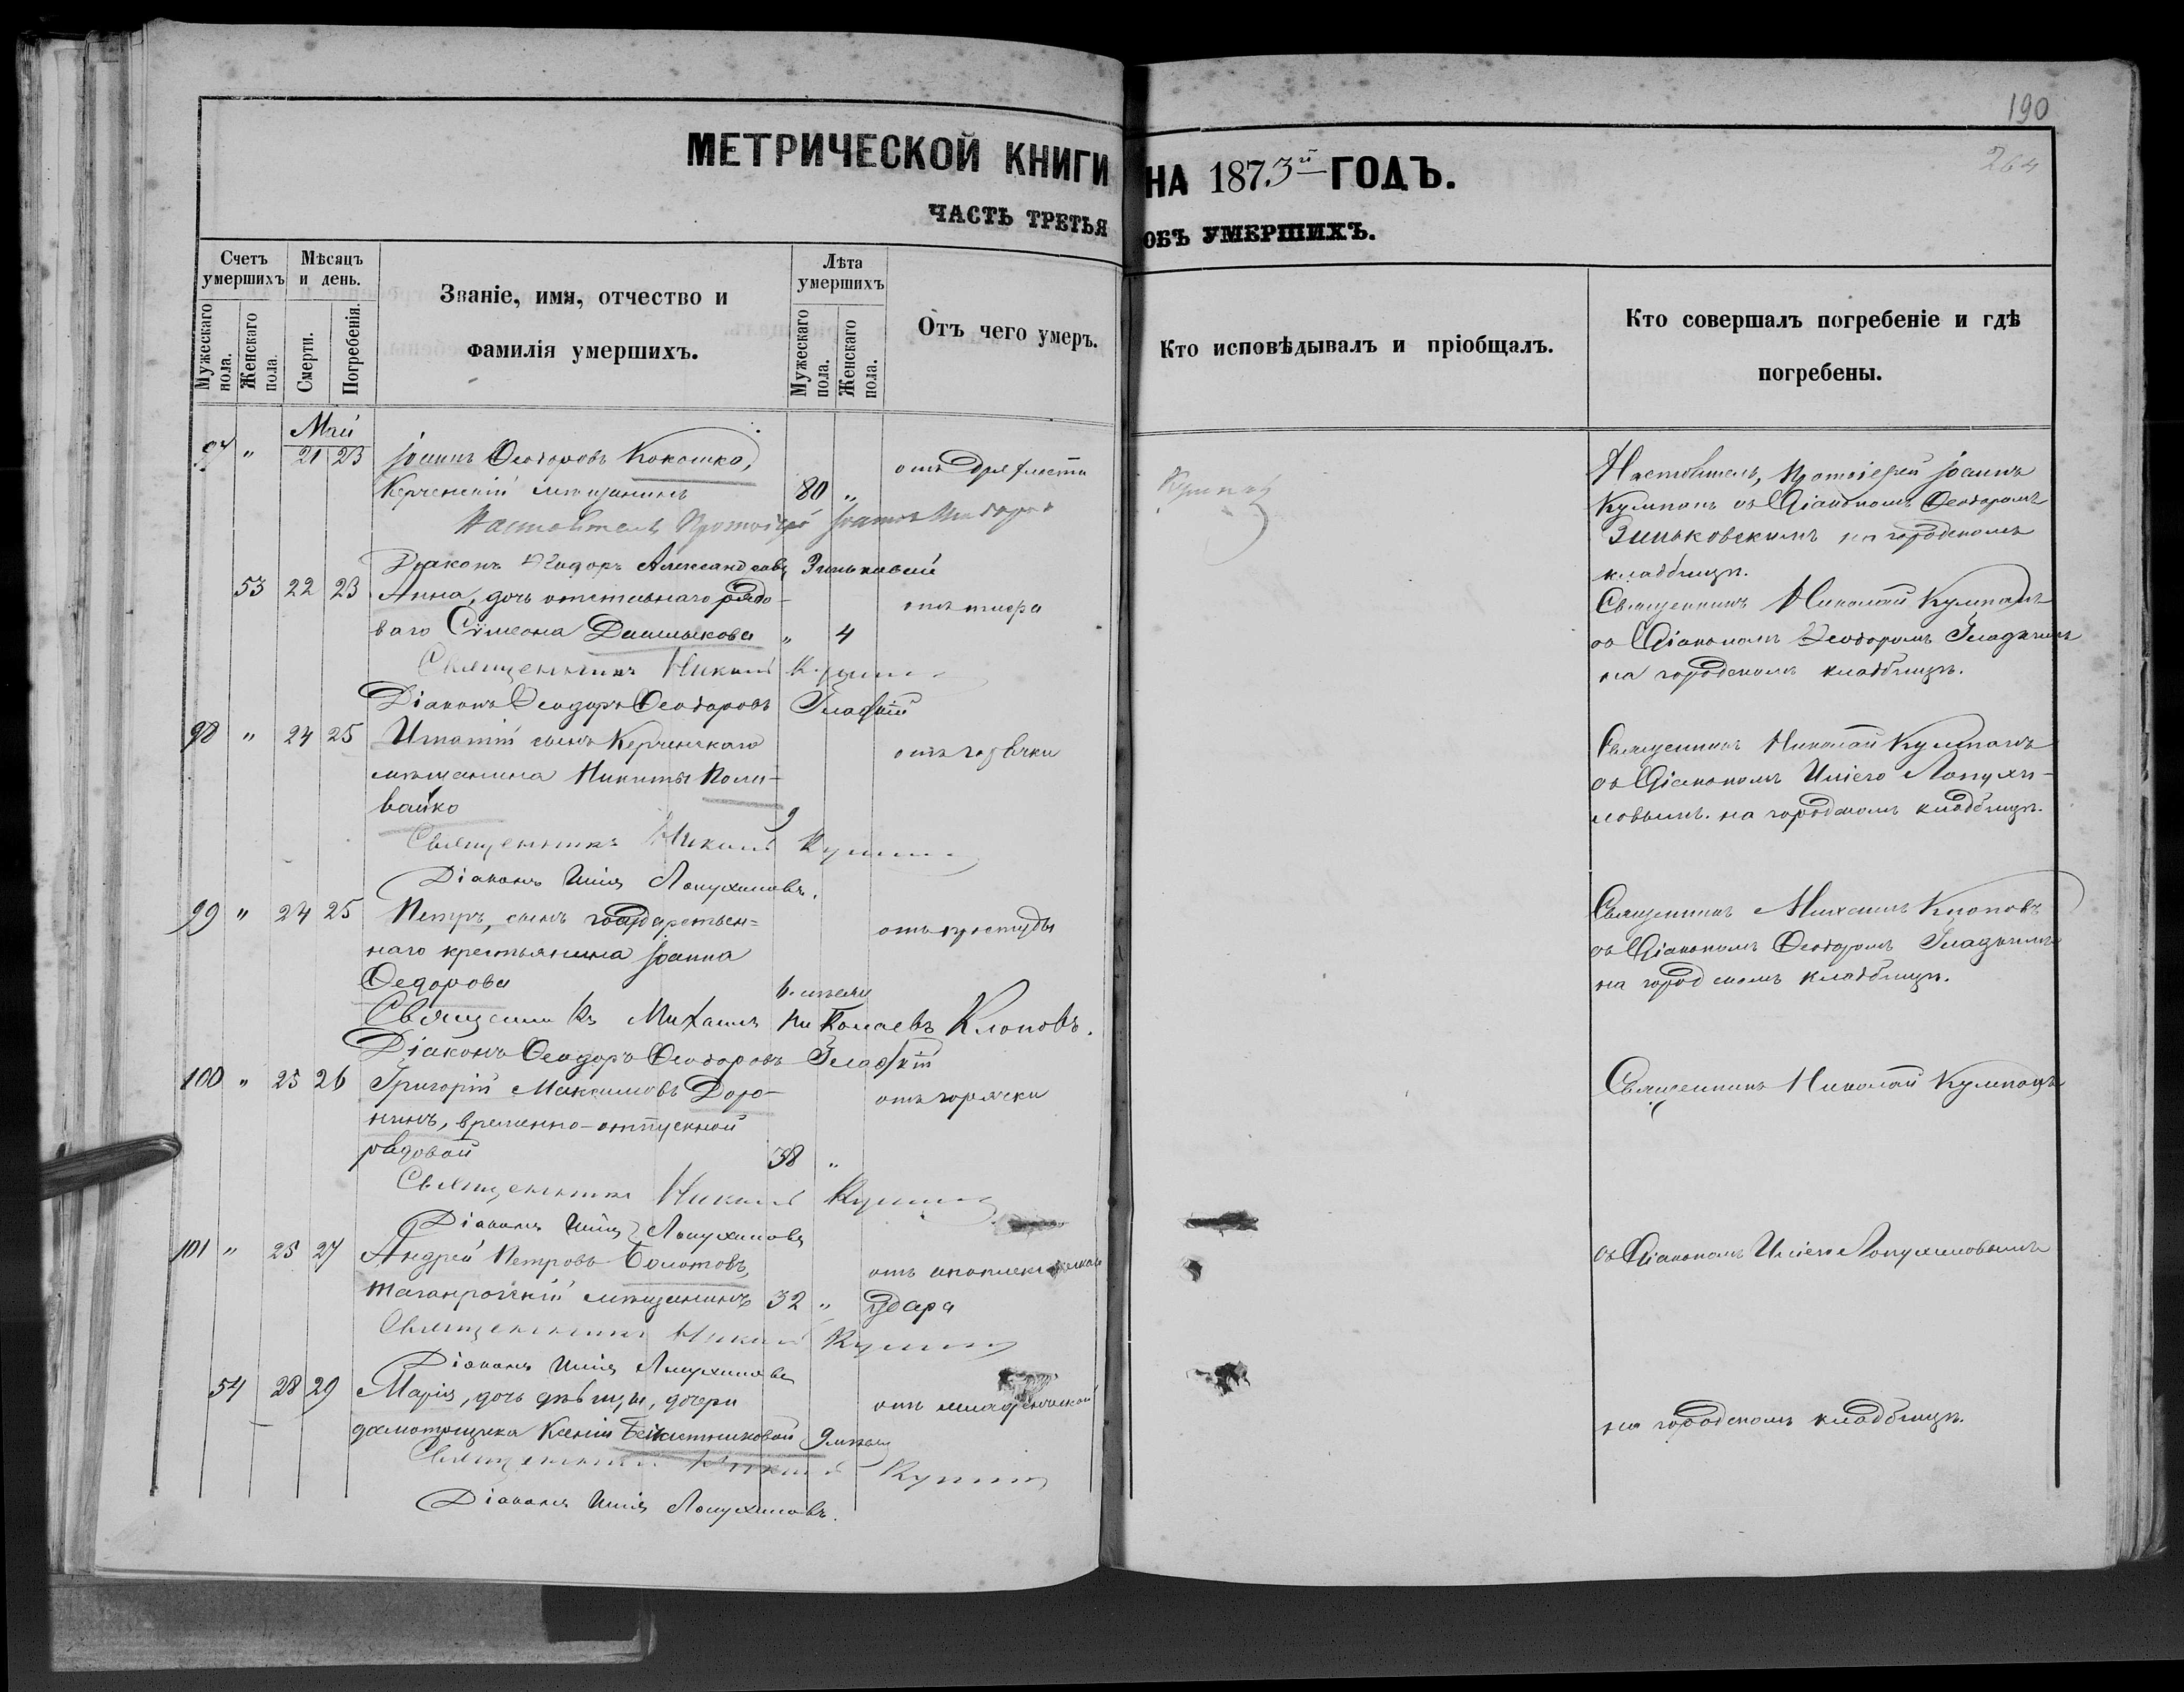 190
264
МЕТРИЧЕСКОЙ КНИГИ НА 1873й ГОДЪ.
ЧАСТЬ ТРЕТЬЯ ОБЪ УМЕРШИХЪ.
Счетъ умершихъ
Мѣсяцъ и день.
Званіе, имя, отчество и фамилія умершихъ.
Лѣта умершихъ
Отъ чего умеръ.
Кто исповѣдывалъ и пріобщалъ.
Кто совершалъ погребеніе и гдѣ погребены.
Мужескаго пола.
Женскаго пола.
Смерти.
Погребенія.
Мужескаго пола.
Женскаго пола.
Май
97 " 21 23 Іоаннъ Ѳеодоровъ Кокошка,
Керченскій мѣщанинъ 80 "
отъ дряхлости
Настоятель, Протоіерей Іоаннъ
Кумпанъ съ Діакономъ Ѳеодоромъ
Зиньковскимъ на городскомъ
кладбищѣ.
Настоятель Протоіерей Іоаннъ
Діаконъ Александровъ
53 22 23 Анна, дочь отставнаго рядо-
ваго Сѵмеона Дашыкова " 4
Священникъ Николай Кумпанъ
съ Діакономъ Ѳеодоромъ Гладкимъ
на городскомъ кладбищѣ.
Священникъ Николай Кумпанъ
Діаконъ Ѳеодоръ Ѳеодоровъ Гладкій
98 " 24 25 Ипатій сынъ Керченскаго
мѣщанина Никиты Коли-
вайко 9
отъ горячки
Священникъ Николай Кумпанъ
съ Діакономъ Иліею Лопухи-
новымъ. на городскомъ кладбищѣ.
Священникъ Николай Кумпанъ
Діаконъ Илія Лопухиновъ.
99 " 24 25 Петръ, сынъ государствен=
наго крестьянина Іоанна
Ѳедорова 6. мѣсяц
отъ простуды
Священникъ Михаилъ Клоповъ
съ Діакономъ Ѳеодоромъ Гладкимъ
на городскомъ кладбищѣ.
Священникъ Михаилъ Николаевъ Клоповъ.
Діаконъ Ѳеодоръ Ѳеодоровъ Гладкій
100 " 25 26 Григорій Максимовъ Доро-
нинъ, временно-отпускной
рядовой 38 "
отъ горячки
Священникъ Николай Кумпанъ
Священникъ Николай Кумпанъ
Діаконъ Илія Лопухиновъ
101 " 25 27 Андрей Петровъ Болотовъ,
таганрогскій мѣщанинъ 32 "
отъ
удара
съ Діакономъ Иліею Лопухиновымъ
Священникъ Николай Кумпанъ
Діаконъ Илія Лопухиновъ
54 28 29 Марія, дочь дѣвицы, дочери
Ксеніи 9 мѣсяц
отъ младенческой
на городскомъ кладбищѣ.
Священникъ Николай Кумпанъ
Діаконъ Илія Лопухиновъ.